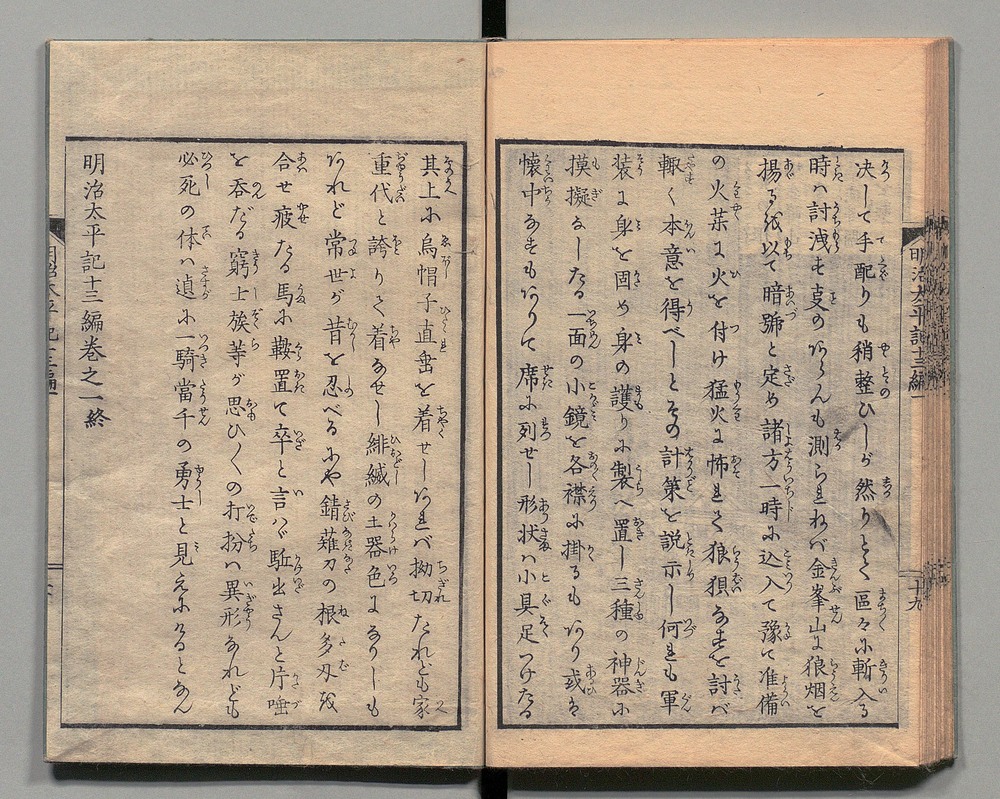 決して手配りも稍整ひしが然りとて區々に斬入る
時ハ討洩も叓のあらんも測られねバ金峯山に狼烟を
揚るを以て暗號と定め諸方一時に込入て豫て准備
の火薬に火を付け猛火に怖れて狼狽なすを討バ
輙く本意を得べしとその計策を説示し何れも軍
装に身を固め身の護りに製へ置し三種の神器に
摸擬なしたる一面の小鏡を各襟に掛るもあり或は
懐中なすもありて席に列せし形状ハ小具足つけたる
其上に烏帽子直垂を着せしあれバ拗切たれども家
重代と誇りて着なせし緋縅の土器色になりしも
あれど常世が昔を忍べるにや錆薙刀の根多刃を
合せ疲たる馬に鞍置て卒と言ハヾ駈出さんと片唾
を呑だる窮士族等が思ひ〱の打扮ハ異形なれども
必死の体ハ遉に一騎當千の勇士と見えにけるとなん
明治太平記十三編巻之一終
明治太平記十三編
十九